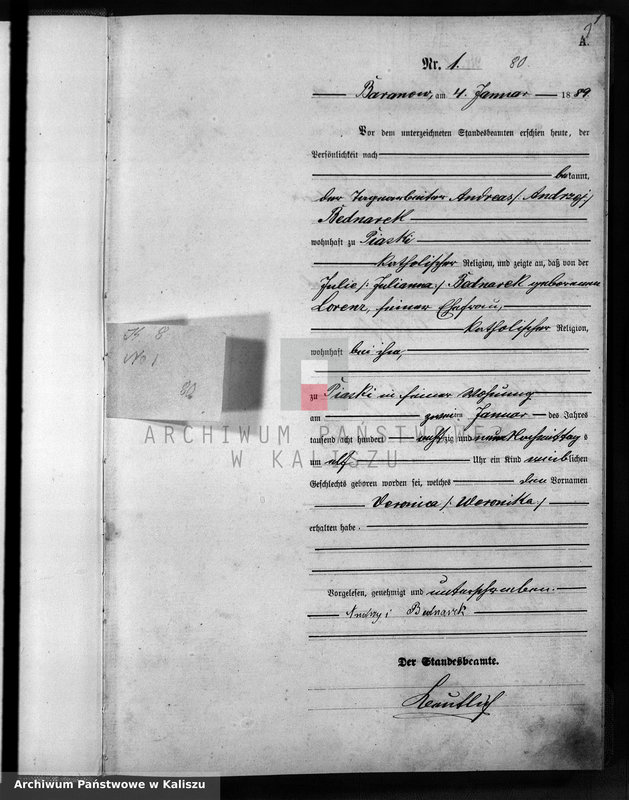 A.
Nr. 1. 80.
Baranow, am 4. Januar 1889
Vor dem unterzeichneten Standesbeamten erschien heute, der
Persönlichkeit nach
bekannt,
der Tagearbeiter Andreas /: Andrzej :/
Bednarek
wohnhaft zu Piaski
katholischer Religion, und zeigte an, daß von der
Julie /: Julianna :/ Bednarek geborenen
Lorenz, seiner Ehefrau,
katholischer Religion,
wohnhaft bei ihm,
K 8
No 1
80
zu Piaski in seiner Wohnung
am zweiten Januar des Jahres
tausend acht hundert achtzig und neun Vormittags
um elf Uhr ein Kind weiblichen
Geschlechts geboren worden sei, welches den Vornamen
Veronica /: Weronika :/
erhalten habe.
Vorgelesen, genehmigt und unterschrieben.
Andrzej Bednarek
Der Standesbeamte.
ARCHIWUM PAŃSTWOWE
W KALISZU
Archiwum Państwowe w Kaliszu